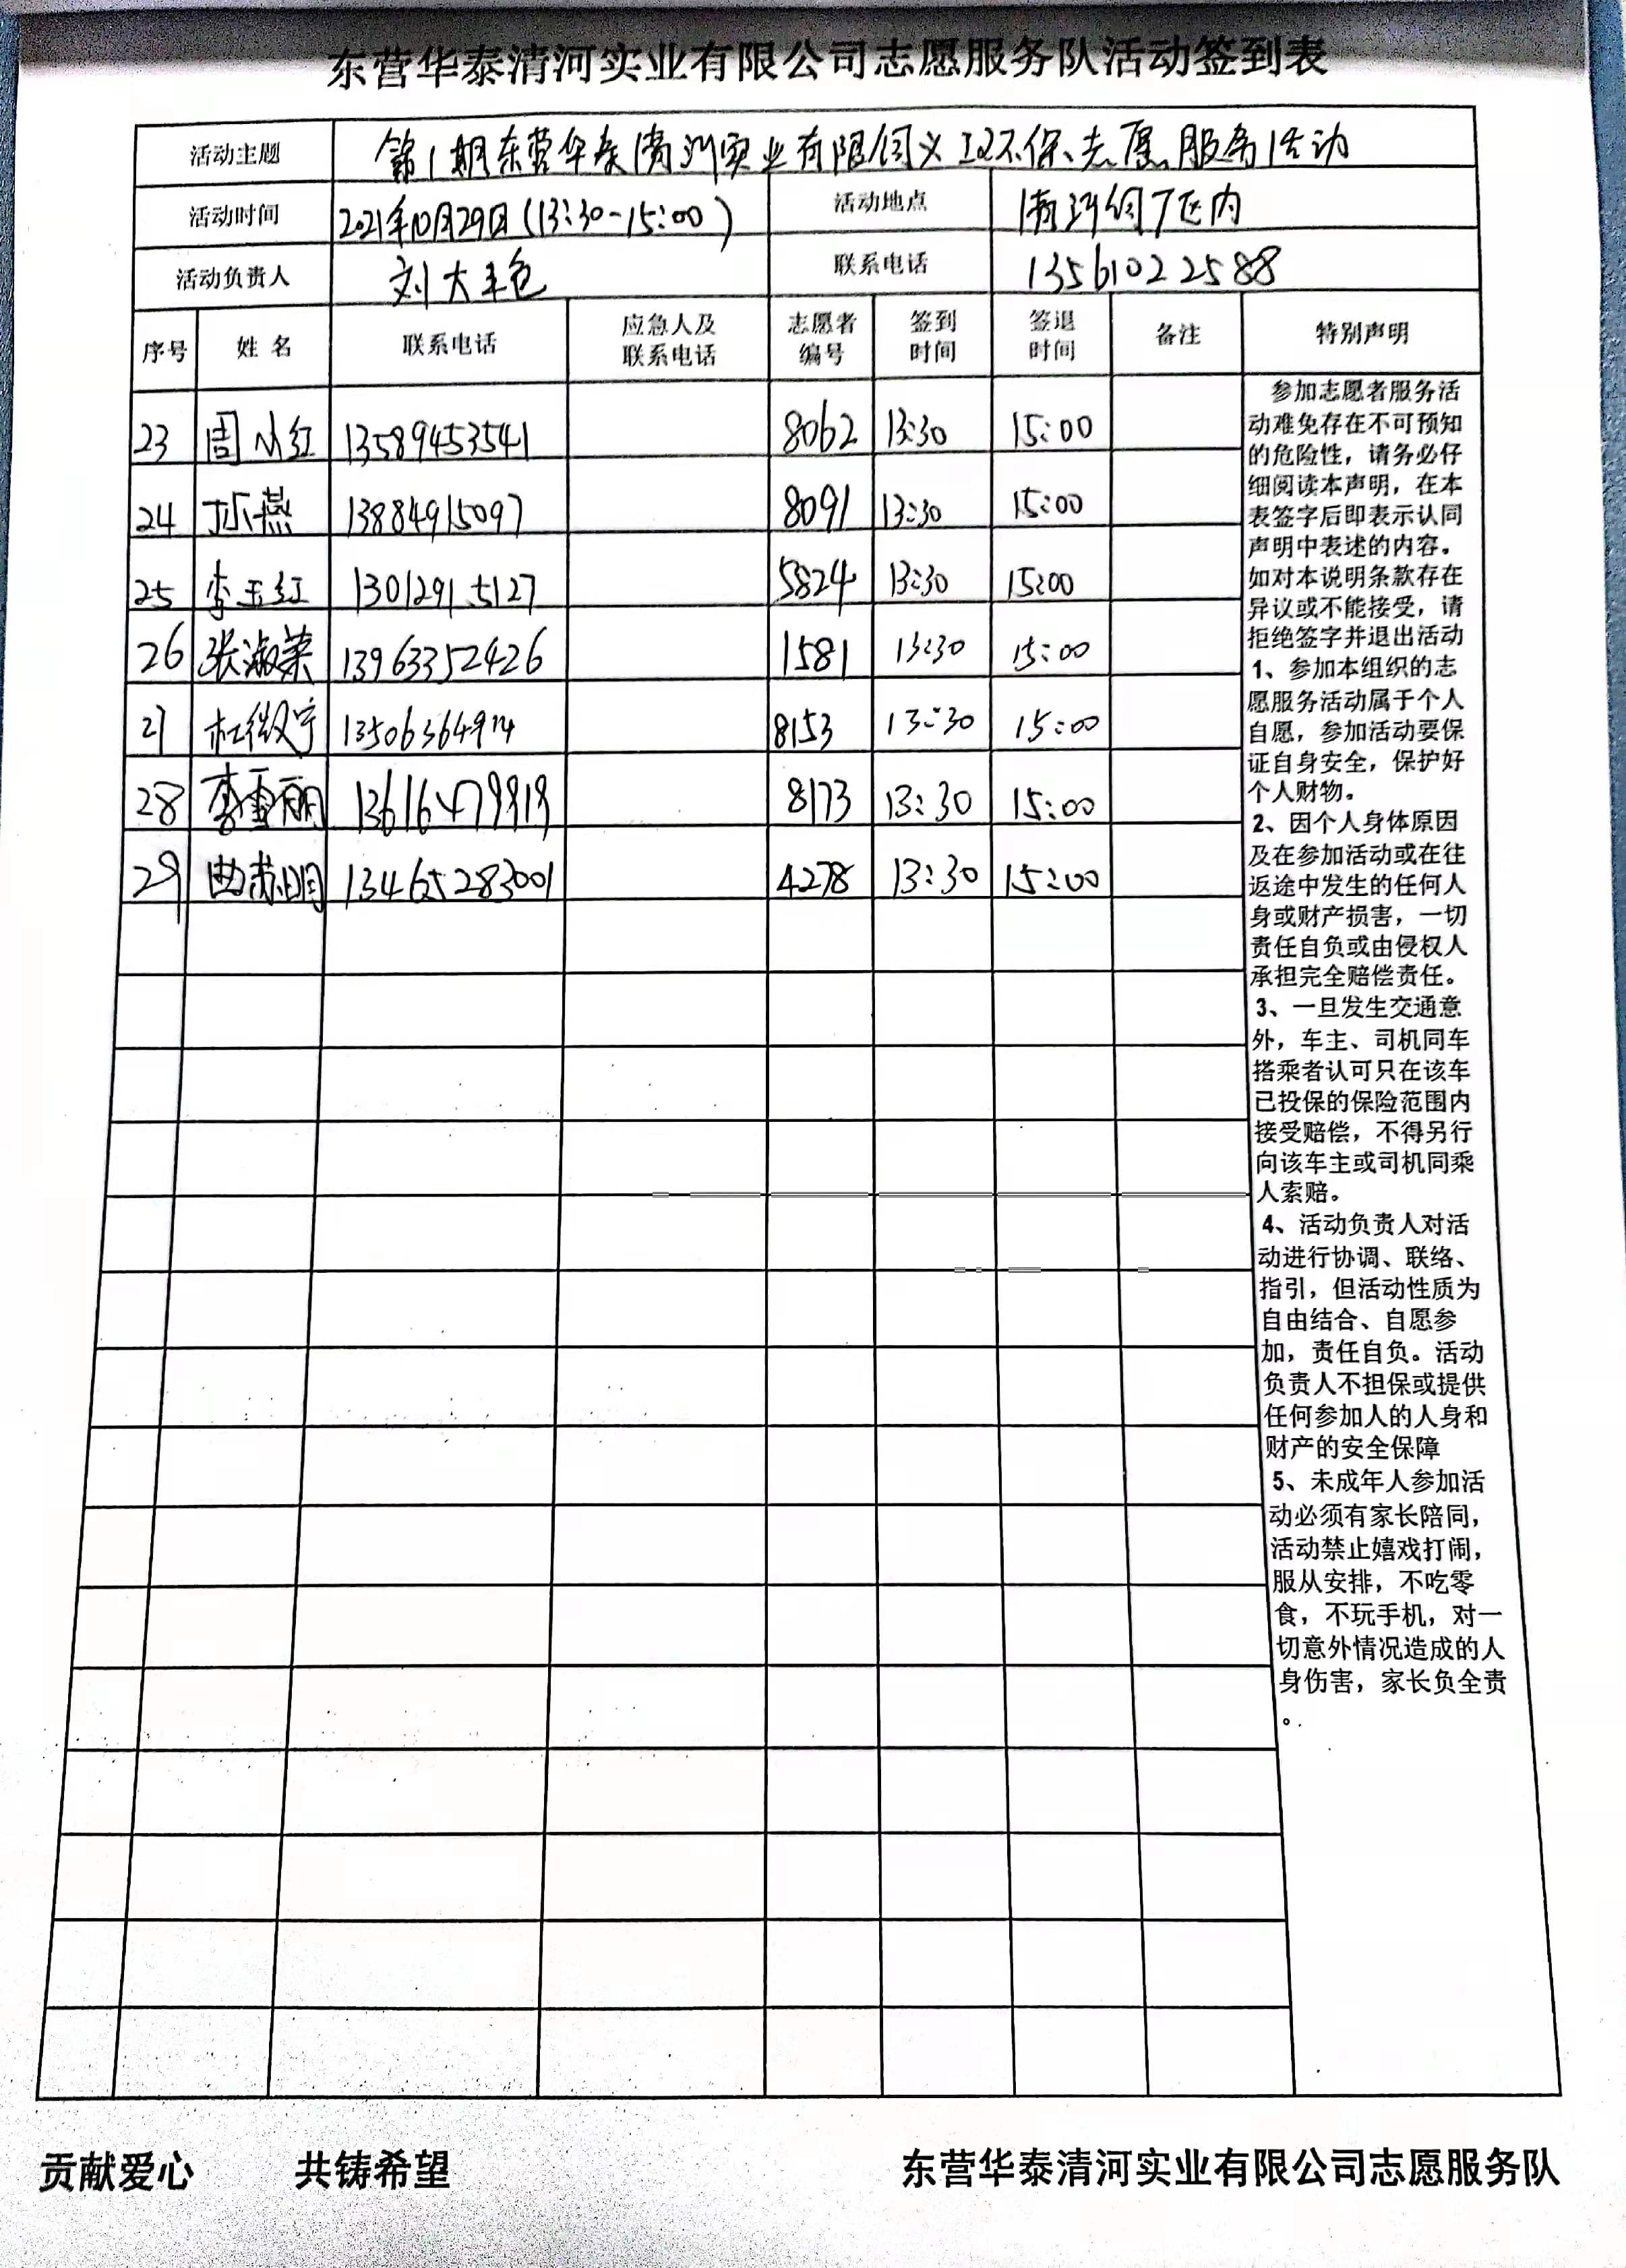 东营华泰清河实业有限公司志愿服务队活动签到表
活动主题 第1期东营华泰清河实业有限公司义工环保志愿服务活动
活动时间 2021年10月29日(13:30-15:00) 活动地点 清河公司厂区内
活动负责人 刘大 联系电话 13561022588
序号 姓名 联系电话 应急人及联系电话 志愿者编号 签到时间 签退时间 备注 特别声明
23 周小红 13589453541 8062 13:30 15:00
24 孙燕 13884915097 8091 13:30 15:00
25 李玉红 13012915127 5824 13:30 15:00
26 张淑荣 13963352426 1581 13:30 15:00
27 杜微宁 8153 13:30 15:00
28 李雪丽 8173 13:30 15:00
29 曲 13465283001 4278 13:30 15:00
参加志愿者服务活
动难免存在不可预知
的危险性，请务必仔
细阅读本声明，在本
表签字后即表示认同
声明中表述的内容。
如对本说明条款存在
异议或不能接受，请
拒绝签字并退出活动
1、参加本组织的志
愿服务活动属于个人
自愿，参加活动要保
证自身安全，保护好
个人财物。
2、因个人身体原因
及在参加活动或在往
返途中发生的任何人
身或财产损害，一切
责任自负或由侵权人
承担完全赔偿责任。
3、一旦发生交通意
外，车主、司机同车
搭乘者认可只在该车
已投保的保险范围内
接受赔偿，不得另行
向该车主或司机同乘
人索赔。
4、活动负责人对活
动进行协调、联络、
指引，但活动性质为
自由结合、自愿参
加，责任自负。活动
负责人不担保或提供
任何参加人的人身和
财产的安全保障
5、未成年人参加活
动必须有家长陪同，
活动禁止嬉戏打闹，
服从安排，不吃零
食，不玩手机，对一
切意外情况造成的人
身伤害，家长负全责
。
贡献爱心 共铸希望 东营华泰清河实业有限公司志愿服务队